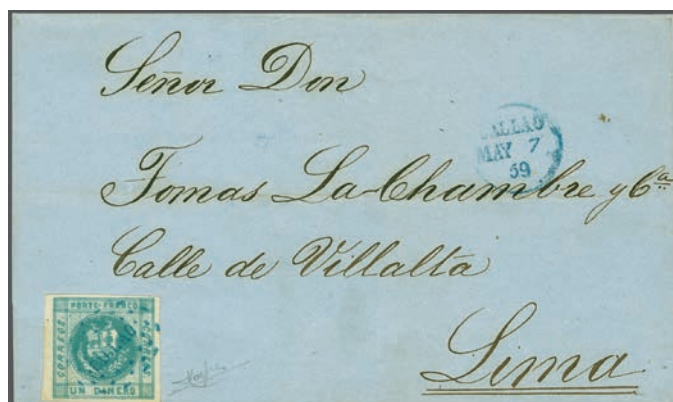 Señor Don
CALLAO
MAY 7
59
Tomas La-Chambre y Cª
Calle de Villalta
Lima
PORTO FRANCO
CORREOS
UN DINERO